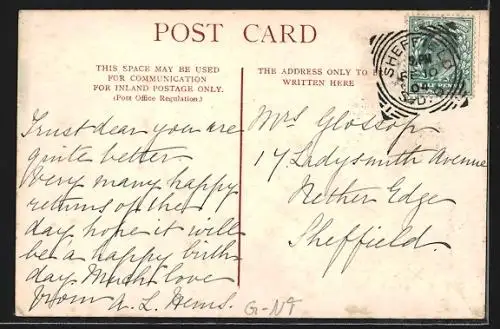 POST CARD
THIS SPACE MAY BE USED
FOR COMMUNICATION
FOR INLAND POSTAGE ONLY.
(Post Office Regulation.)
THE ADDRESS ONLY TO BE
WRITTEN HERE
SHEFFIELD
Trust dear you are
quite better.
Very many happy
returns of the
day hope it will
be a happy birth
day. Much love
from A. L. Hems.
Mrs Glossop
17 Ladysmith Avenue
Nether Edge
Sheffield.